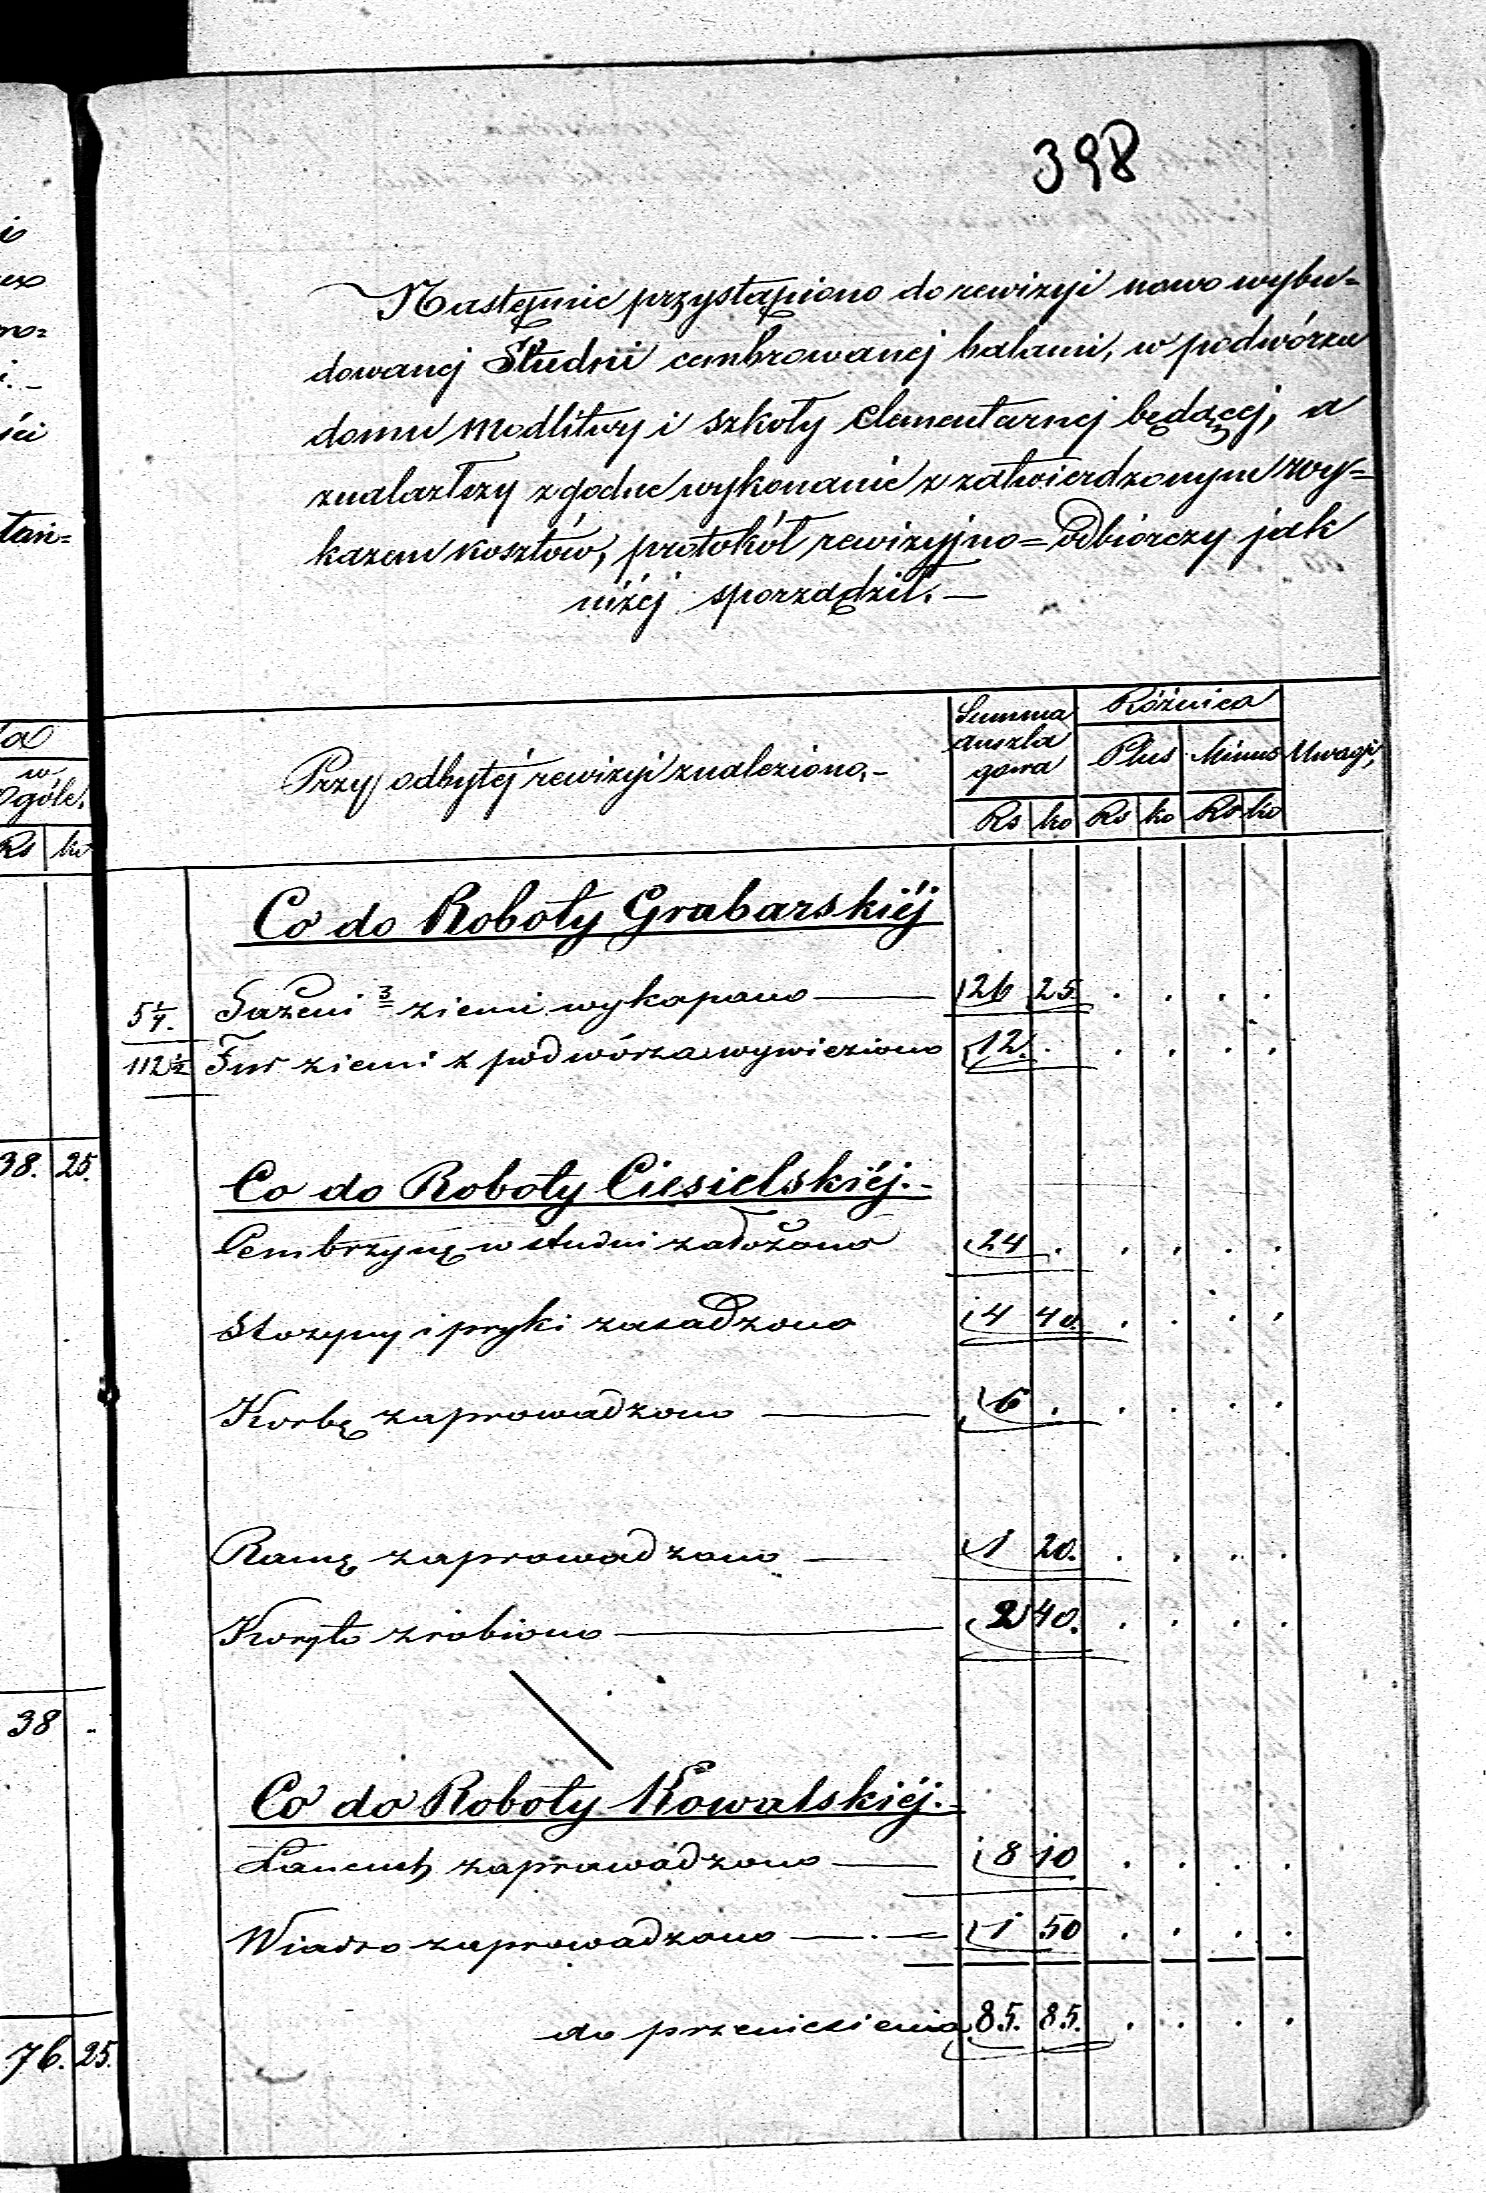 398
Następnie przystąpiono do rewizyi nowo wybu=
dowanej Studni cembrowanej balami, w podwórzu
domu modlitwy i szkoły elementarnej będącej, a
znalazłszy zgodne wykonanie z zatwierdzonym wy=
kazem kosztów, protokół rewizyjno=Odbiorczy jak
niżej sporządził.—
Przy odbytej rewizyi znaleziono.–
Summa
auszla
gowa
Różnica
Plus Minus Uwagi
Rs ko Rs ko Rs ko
Co do Roboty Grabarskiéj
5 1/4. Sażeni 3 ziemi wykopano — 26 25.
112 1/2 Fur ziemi z podwórza wywieziono 12.
Co do Roboty Ciesielskiéj.–
Cembrzynę w studni założono 24 .
Stozyny i pryki zasadzono 4 40.
Korbę zaprowadzono — 6 .
Ramę zaprowadzono — 1 20.
Koryto zrobiono — 2 40.
Co do Roboty Kowalskiéj.–
Łancuch zaprowadzono — 8 10
Wiadro zaprowadzono — 1 50
do przeniesienia 85. 85.
w
ogóle.
Rs ko
38. 25.
38 .
76. 25.